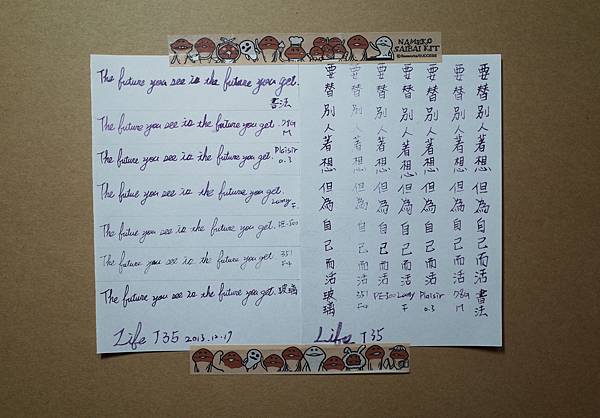 NAMEKO
SAIBAI KIT
©Beeworks/SUCCESS
The future you see is the future you get.
書法
The future you see is the future you get. 78G
M
The future you see is the future you get. Plaisir
0.3
The future you see is the future you get.
Lamy
F
The future you see is the future you get.
The future you see is the future you get. 351
The future you see is the future you get. 玻璃
Life T35 2013.12.19
要替別人著想但為自己而活書法
要替別人著想但為自己而活78G M
要替別人著想但為自己而活Plaisir 0.3
要替別人著想但為自己而活Lamy F
要替別人著想但為自己而活
要替別人著想但為自己而活351
要替別人著想但為自己而活玻璃
Life T35